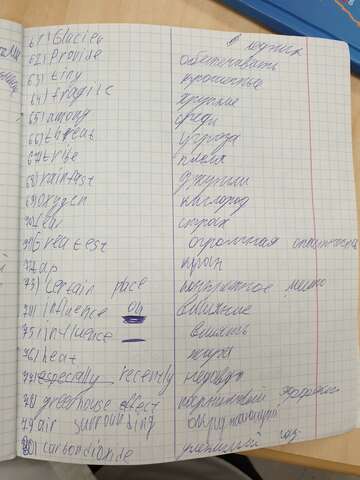 61) Glacier ледник
62) Provide обеспечивать
63) tiny крошечные
64) fragile хрупкие
65) among среди
66) threat угроза
67) tribe племя
68) rainfast джунгли
69) oxygen кислород
70) fear страх
71) Greatest огромная
72) ap
73) certain place место
74) influence on влияние
75) influence влиять
76) heat жара
77) especially recently недавно
78) greenhouse effect парниковый
79) air surrounding окружающий
80) carbondioxide газ